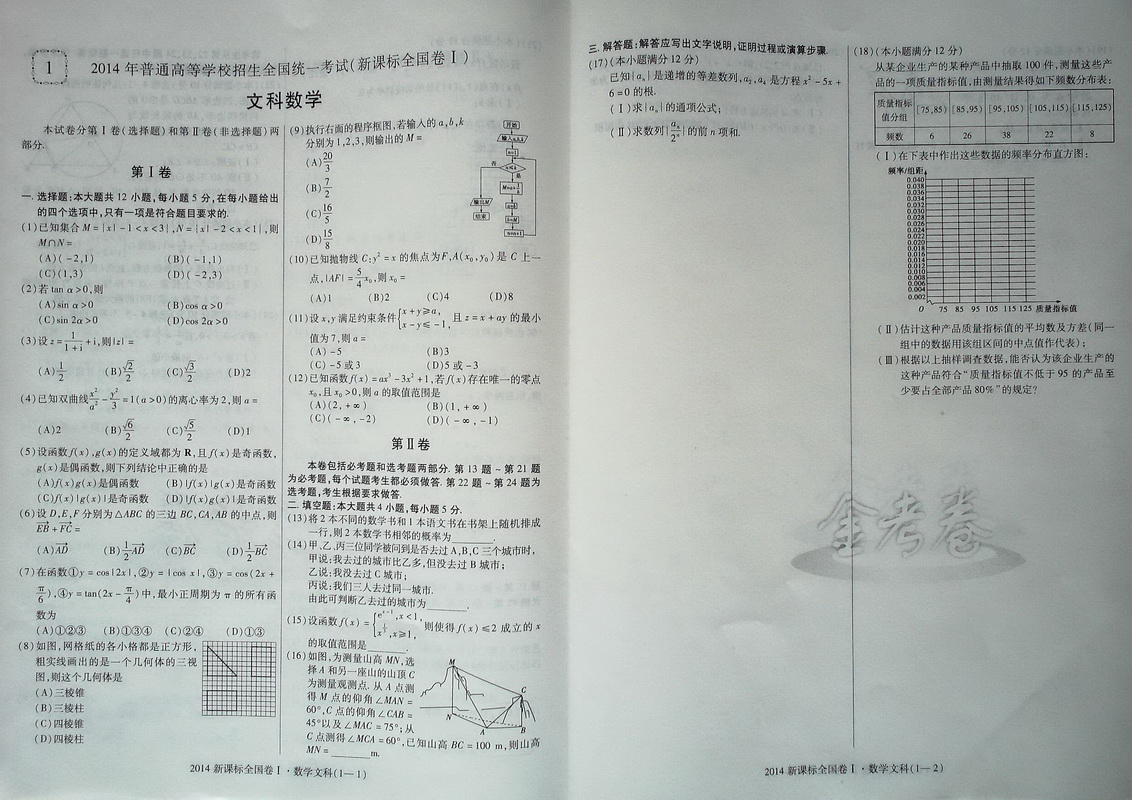 1
2014年普通高等学校招生全国统一考试(新课标全国卷Ⅰ)
文科数学
本试卷分第Ⅰ卷(选择题)和第Ⅱ卷(非选择题)两
部分.
第Ⅰ卷
一. 选择题:本大题共12小题,每小题5分,在每小题给出
的四个选项中,只有一项是符合题目要求的.
(1)已知集合M={x|-1<x<3},N={x|-2<x<1},则
M∩N=
(A)(-2,1) (B)(-1,1)
(C)(1,3) (D)(-2,3)
(2)若tan α>0,则
(A)sin α>0 (B)cos α>0
(C)sin 2α>0 (D)cos 2α>0
(3)设z=1/(1+i)+i,则|z|=
(A)1/2 (B)√2/2 (C)√3/2 (D)2
(4)已知双曲线x²/a²-y²/3=1(a>0)的离心率为2,则a=
(A)2 (B)√6/2 (C)√5/2 (D)1
(5)设函数f(x),g(x)的定义域都为R,且f(x)是奇函数,
g(x)是偶函数,则下列结论中正确的是
(A)f(x)g(x)是偶函数 (B)|f(x)|g(x)是奇函数
(C)f(x)|g(x)|是奇函数 (D)|f(x)g(x)|是奇函数
(6)设D,E,F分别为△ABC的三边BC,CA,AB的中点,则
EB+FC=
(A)AD (B)1/2AD (C)BC (D)1/2BC
(7)在函数①y=cos|2x|,②y=|cos x|,③y=cos(2x+
π/6),④y=tan(2x-π/4)中,最小正周期为π的所有函
数为
(A)①②③ (B)①③④ (C)②④ (D)①③
(8)如图,网格纸的各小格都是正方形,
粗实线画出的是一个几何体的三视
图,则这个几何体是
(A)三棱锥
(B)三棱柱
(C)四棱锥
(D)四棱柱
(9)执行右面的程序框图,若输入的a,b,k
分别为1,2,3,则输出的M=
(A)20/3
(B)7/2
(C)16/5
(D)15/8
开始
输入a,b,k
n=1
n≤k
否
是
M=a+1/b
输出M
a=b
结束
b=M
n=n+1
(10)已知抛物线C:y²=x的焦点为F,A(x₀,y₀)是C上一
点,|AF|=5/4x₀,则x₀=
(A)1 (B)2 (C)4 (D)8
(11)设x,y满足约束条件{x+y≥a, x-y≤-1, 且z=x+ay的最小
值为7,则a=
(A)-5 (B)3
(C)-5或3 (D)5或-3
(12)已知函数f(x)=ax³-3x²+1,若f(x)存在唯一的零点
x₀,且x₀>0,则a的取值范围是
(A)(2,+∞) (B)(1,+∞)
(C)(-∞,-2) (D)(-∞,-1)
第Ⅱ卷
本卷包括必考题和选考题两部分. 第13题~第21题
为必考题,每个试题考生都必须做答. 第22题~第24题为
选考题,考生根据要求做答.
二. 填空题:本大题共4小题,每小题5分.
(13)将2本不同的数学书和1本语文书在书架上随机排成
一行,则2本数学书相邻的概率为______.
(14)甲、乙、丙三位同学被问到是否去过A,B,C三个城市时,
甲说:我去过的城市比乙多,但没去过B城市;
乙说:我没去过C城市;
丙说:我们三人去过同一城市.
由此可判断乙去过的城市为______.
(15)设函数f(x)={eˣ⁻¹,x<1, x^(1/3),x≥1, 则使得f(x)≤2成立的x
的取值范围是______.
(16)如图,为测量山高MN,选
择A和另一座山的山顶C
为测量观测点. 从A点测
得M点的仰角∠MAN=
60°,C点的仰角∠CAB=
45°以及∠MAC=75°;从
C点测得∠MCA=60°,已知山高BC=100 m,则山高
MN=______m.
M
C
N
A
B
2014新课标全国卷Ⅰ·数学文科(1—1)
三. 解答题:解答应写出文字说明,证明过程或演算步骤.
(17)(本小题满分12分)
已知{aₙ}是递增的等差数列,a₂,a₄是方程x²-5x+
6=0的根.
(Ⅰ)求{aₙ}的通项公式;
(Ⅱ)求数列{aₙ/2ⁿ}的前n项和.
(18)(本小题满分12分)
从某企业生产的某种产品中抽取100件,测量这些产
品的一项质量指标值,由测量结果得如下频数分布表:
质量指标值分组 [75,85) [85,95) [95,105) [105,115) [115,125)
频数 6 26 38 22 8
(Ⅰ)在下表中作出这些数据的频率分布直方图:
频率/组距
0.040
0.038
0.036
0.034
0.032
0.030
0.028
0.026
0.024
0.022
0.020
0.018
0.016
0.014
0.012
0.010
0.008
0.006
0.004
0.002
O 75 85 95 105 115 125 质量指标值
(Ⅱ)估计这种产品质量指标值的平均数及方差(同一
组中的数据用该组区间的中点值作代表);
(Ⅲ)根据以上抽样调查数据,能否认为该企业生产的
这种产品符合“质量指标值不低于95的产品至
少要占全部产品80%”的规定?
金考卷
2014新课标全国卷Ⅰ·数学文科(1—2)